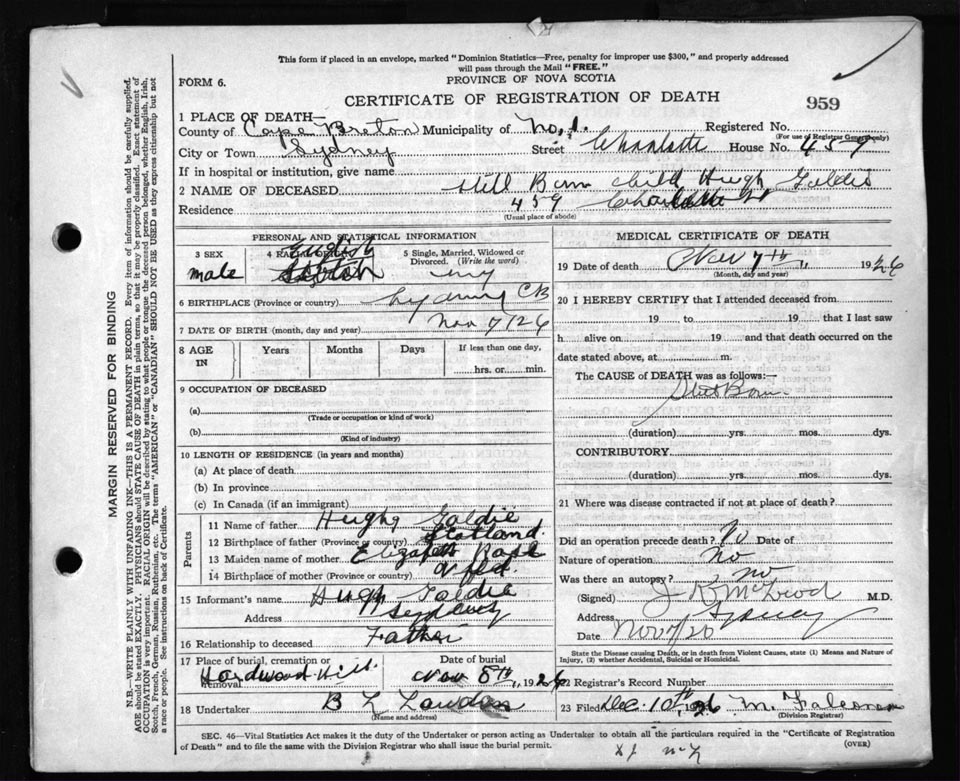 This form if placed in an envelope, marked "Dominion Statistics—Free, penalty for improper use $300," and properly addressed
will pass through the Mail "FREE."
FORM 6.
PROVINCE OF NOVA SCOTIA
CERTIFICATE OF REGISTRATION OF DEATH
959
1 PLACE OF DEATH—
County of Cape Breton Municipality of No. 1. Registered No.
(For use of Registrar General only)
City or Town Sydney Street Charlotte House No. 459
If in hospital or institution, give name
2 NAME OF DECEASED Still Born child Hugh Goldie
Residence 459 Charlotte St
(Usual place of abode)
PERSONAL AND STATISTICAL INFORMATION
3 SEX
male
4 RACIAL ORIGIN
English
Scotch
5 Single, Married, Widowed or
Divorced. (Write the word)
6 BIRTHPLACE (Province or country) Sydney CB
7 DATE OF BIRTH (month, day and year) Nov 7/26
8 AGE IN Years Months Days If less than one day, hrs. or min.
9 OCCUPATION OF DECEASED
(a)
(Trade or occupation or kind of work)
(b)
(Kind of industry)
10 LENGTH OF RESIDENCE (in years and months)
(a) At place of death
(b) In province
(c) In Canada (if an immigrant)
Parents
11 Name of father Hugh Goldie
12 Birthplace of father (Province or country) Scotland.
13 Maiden name of mother Elizabeth
14 Birthplace of mother (Province or country) Nfld.
15 Informant's name Hugh Goldie
Address Sydney
16 Relationship to deceased Father
17 Place of burial, cremation or
removal Hardwood Hill.
Date of burial
Nov 8th, 1926
18 Undertaker B L
(Name and address)
MEDICAL CERTIFICATE OF DEATH
19 Date of death Nov 7th, 1926
(Month, day and year)
20 I HEREBY CERTIFY that I attended deceased from
19 to 19 that I last saw
h alive on 19 and that death occurred on the
date stated above, at m.
The CAUSE of DEATH was as follows:—
Still Born
(duration) yrs. mos. dys.
CONTRIBUTORY
(duration) yrs. mos. dys.
21 Where was disease contracted if not at place of death?
Did an operation precede death? No Date of
Nature of operation no
Was there an autopsy? no
(Signed) J K McLeod M.D.
Address Sydney
Date Nov 7/26
State the Disease causing Death, or in death from Violent Causes, state (1) Means and Nature of
Injury, (2) whether Accidental, Suicidal or Homicidal.
22 Registrar's Record Number
23 Filed Dec. 10th, 1926 M. Falconer
(Division Registrar)
SEC. 46—Vital Statistics Act makes it the duty of the Undertaker or person acting as Undertaker to obtain all the particulars required in the "Certificate of Registration
of Death" and to file the same with the Division Registrar who shall issue the burial permit.
(OVER)
MARGIN RESERVED FOR BINDING
N.B.—WRITE PLAINLY WITH UNFADING INK—THIS IS A PERMANENT RECORD. Every item of information should be carefully supplied.
AGE should be stated EXACTLY. PHYSICIANS should STATE CAUSE OF DEATH in plain terms, so that it may be properly classified. Exact statement of
OCCUPATION is very important. RACIAL ORIGIN will be described by stating to what people or tongue the deceased person belonged, whether English, Irish,
Scotch, French, German, Russian, Ruthenian, etc. The terms "AMERICAN" or "CANADIAN" SHOULD NOT BE USED as they express citizenship but not
a race or people. See instructions on back of Certificate.